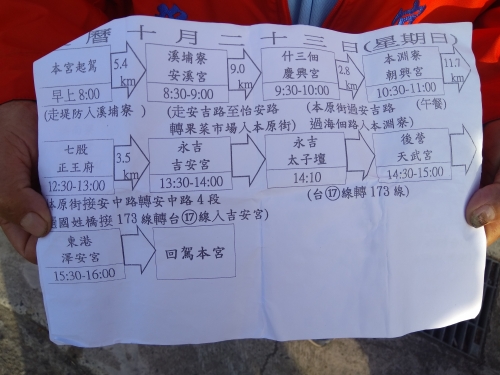 曆十月二十三日(星期日)
本宮起駕 5.4 溪埔寮 9.0 什三佃 2.8 本淵寮 11.7
km 安溪宮 km 慶興宮 km 朝興宮 km
早上8:00 8:30-9:00 9:30-10:00 10:30-11:00
(走堤防入溪埔寮) (走安吉路至怡安路 (本原街過安吉路 (午餐)
轉果菜市場入本原街) 過海佃路入本淵寮)
七股 3.5 永吉 永吉 後營
正王府 km 吉安宮 太子壇 天武宮
12:30-13:00 13:30-14:00 14:10 14:30-15:00
本原街接安中路轉安中路4段 (台⑰線轉173線)
國姓橋接173線轉台⑰線入吉安宮)
東港 回駕本宮
澤安宮
15:30-16:00